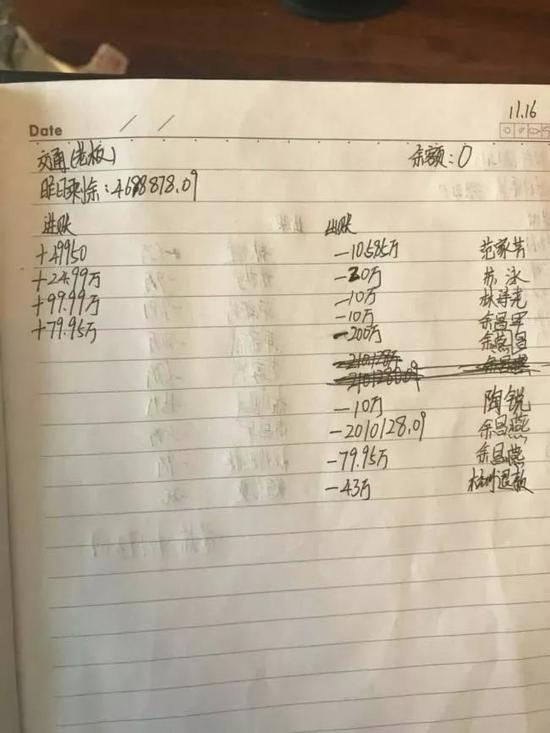 11.16
Date / /
交通(老板) 余额:0
昨日剩余:4698878.09
进账 出账
+49950 -105.85万 范家芳
+24.99万 -20万 苏泳
+99.99万 -10万
+79.95万 -10万 余昌军
-200万
-10万 陶锐
-2010128.09 余昌燕
-79.95万 余昌燕
-43万 杭州退款